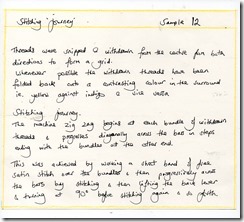 Stitching 'journey'    Sample 12
Threads were snipped & withdrawn from the centre in both
directions to form a grid.
Wherever possible the withdrawn threads have been
folded back onto a contrasting colour in the surround
ie. yellow against indigo & vice versa
Stitching journey.
The machine zig zag begins at each bundle of withdrawn
threads & progresses diagonally across the bars in steps
ending with the bundles at the other end.
This was achieved by working a short band of
Satin stitch over the bundles & then progressively across
the bars by stitching & then lifting the foot lever
& turning at 90° before stitching again & so forth